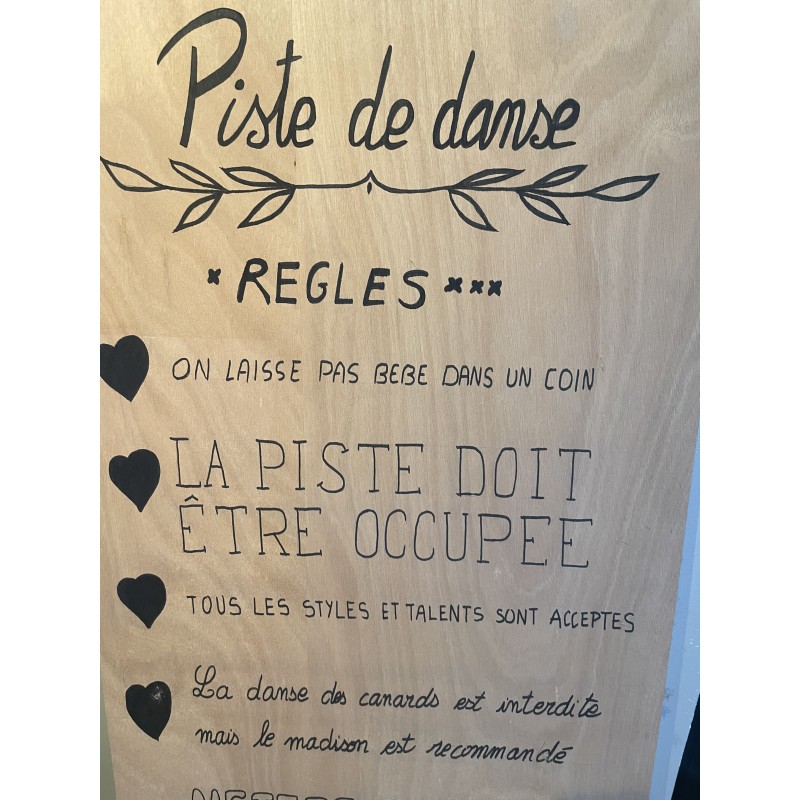 Piste de danse
* REGLES ***
ON LAISSE PAS BEBE DANS UN COIN
LA PISTE DOIT
ÊTRE OCCUPEE
TOUS LES STYLES ET TALENTS SONT ACCEPTES
La danse des canards est interdite
mais le madison est recommandé